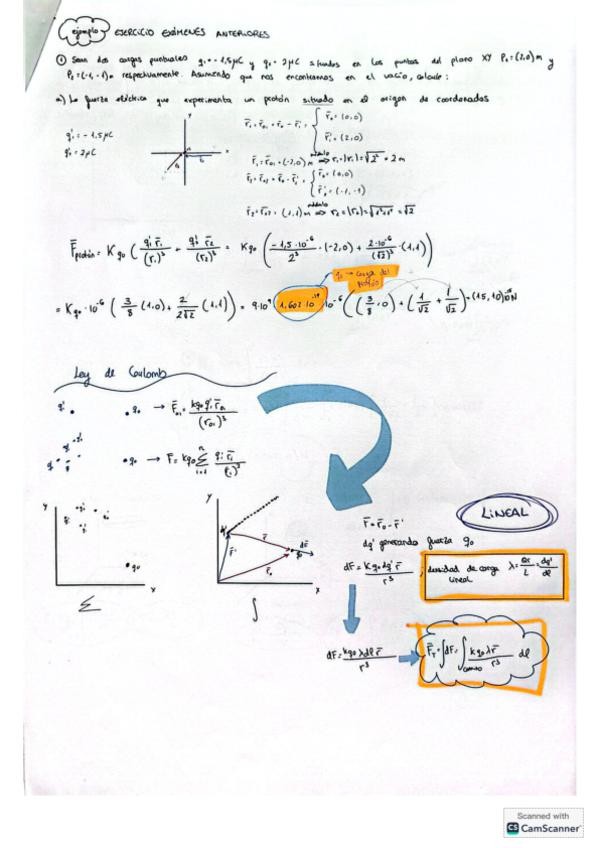 ejemplo EJERCICIO EXÁMENES ANTERIORES
① Sean dos cargas puntuales q₁ = -1,5μC y q₂ = 2μC situadas en los puntos del plano XY P₁ = (2,0)m y
P₂ = (-1,-1)m respectivamente. Asumiendo que nos encontramos en el vacío, calcular:
a) La fuerza eléctrica que experimenta un protón situado en el origen de coordenadas
q₁' = -1,5μC
q₂' = 2μC
y
x
r̄₁ = r̄₀₁ = r̄₀ - r̄₁' = { r̄₀ = (0,0)
r̄₁' = (2,0)
r̄₁ = r̄₀₁ = (-2,0)m módulo ⇒ r₁ = |r̄₁| = √2² = 2m
r̄₂ = r̄₀₂ = r̄₀ - r̄₂' = { r̄₀ = (0,0)
r̄₂' = (-1,-1)
r̄₂ = r̄₀₂ = (1,1)m módulo ⇒ r₂ = |r̄₂| = √1²+1² = √2
F̄protón = Kq₀ (q₁' r̄₁/(r₁)³ + q₂' r̄₂/(r₂)³) = Kq₀ (-1,5·10⁻⁶/2³ · (-2,0) + 2·10⁻⁶/(√2)³ · (1,1))
q₀ → carga del
protón
= Kq₀·10⁻⁶ (3/8 (1,0) + 2/2√2 (1,1)) = 9·10⁹ (1,602·10⁻¹⁹) 10⁻⁶ ((3/8, 0) + (1/√2 + 1/√2)) =
Ley de Coulomb
q' q₀ → F̄₀₁ = kq₀q' r̄₀₁/(r₀₁)³
q₀ → F̄ = kq₀ Σ qᵢ r̄ᵢ/(rᵢ)³
n
i=1
y
q₀
x
Σ
y
dq'
r̄
r̄'
r̄₀
q₀
dF̄
x
∫
LINEAL
r̄ = r̄₀ - r̄'
dq' generando fuerza q₀
dF̄ = Kq₀dq' r̄/r³ ; densidad de carga lineal λ = Q/L = dq'/dl
dF̄ = kq₀λdl r̄/r³
F̄T = ∫dF̄ = ∫ kq₀λr̄/r³ dl
Scanned with
CS CamScanner